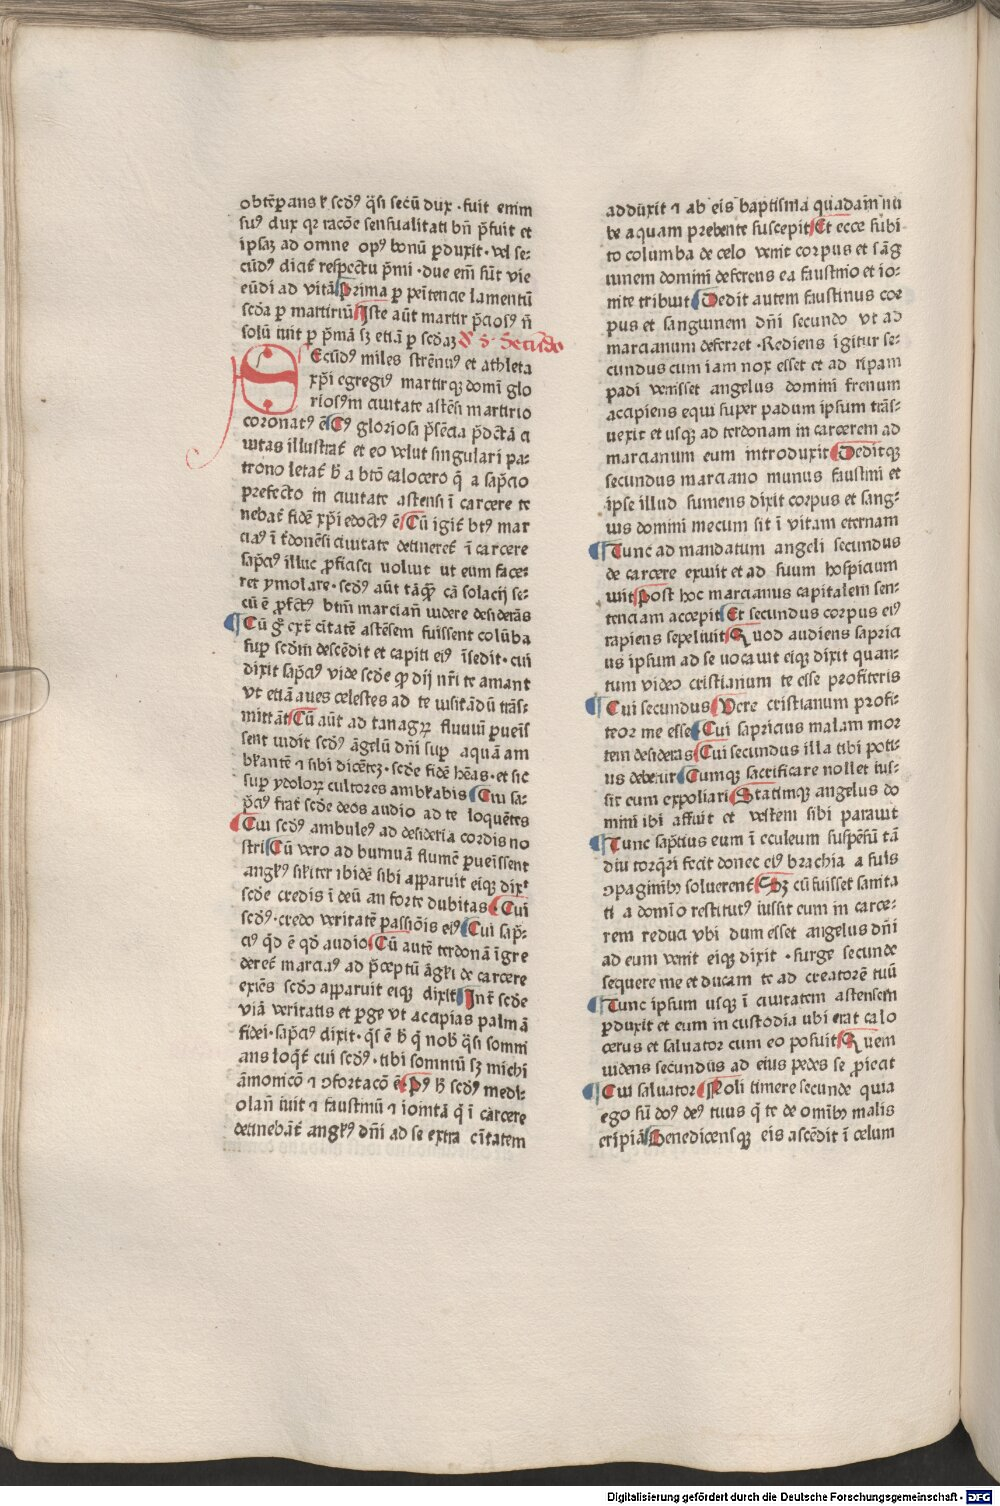 obtēꝑans ⁊ scdꝰ q̄si secū dux · fuit enim
suꝰ dux qꝛ racōe sensualitati bn̄ p̄fuit et
ipsaꝫ ad omne opꝰ bonū ꝓduxit · vel se-
cūdꝰ dicit̄ respectu p̄mi · due em̄ sūt vie
eūdi ad vitā Prima ꝑ pēitencie lamentū
scd̄a ꝑ martiriū Iste aūt martir p̄ciosꝰ n̄
solū iuit ꝑ p̄mā sꝫ etiā ꝑ scd̄aꝫ D̄ s̄ Secūdo
SEcūdꝰ miles strēnuꝰ et athleta
xp̄i egregiꝰ martirqꝫ domī glo
riosꝰm ciuitate astēsi martirio
coronatꝰ ē Cꝰ gloriosa p̄sēcia p̄dc̄tā ci
uitas illustrat̄ et eo velut singulari pa-
trono letat̄ h̄ a btō calocero q̄ a sap̄cio
prefecto in ciuitate astensi ī carcere te
nebat̄ fidē xp̄i edoctꝰ ē Cū igit̄ btꝰ mar
ciaꝰ ī t̄donēsi ciuitate detineret̄ ī carcere
sap̄ciꝰ illuc ꝓficisci voluit ut eum face-
ret ymolare · scdꝰ aūt tāqꝫ cā solacij se-
cū ē ꝓfctꝰ btm̄ marcian̄ videre desiderās
Cū g̊ ext̄ cītatē astēsem fuissent colūba
suꝑ scdm̄ descēdit et capiti eiꝰ īsedit · cui
dixit sap̄ciꝰ vide scd̄e qꝫ dij nr̄i te amant
vt etiā aues celestes ad te visitādū trās-
mittāt Cū aūt ad tanagꝝ fluuiū ꝑueis̄
sent vidit scdꝰ āgelū dn̄i suꝑ aquā am
bulantē ⁊ sibi dicētēꝫ · scd̄e fidē hēas · et sic
suꝑ ydoloꝝ cultores ambulabis Cui sa-
p̄ciꝰ frat̄ scd̄e deos audio ad te loquētes
Cui scdꝰ ambuleꝰ ad desideria cordis no
stri Cū vero ad burnuā flumē ꝑueissent
angelꝰ similiter ibidē sibi apparuit eiqꝫ dixit
scd̄e credis ī deū an forte dubitas Cui
scdꝰ · credo veritatē passiōis eiꝰ Cui sap̄-
ciꝰ qd̄ ē qd̄ audio Cū autē terdonā īgre
deret̄ marciaꝰ ad p̄ceptū āgeli de carcere
exiēs scd̄o apparuit eiqꝫ dixit Int̄ scd̄e
viā veritatis et ꝑge vt accipias palmā
fidei · sap̄ciꝰ dixit · q̄s ē h̄ q̄ nob̄ q̄si somni
ans loqt̄ cui scdꝰ · tibi somniū sꝫ michi
āmonicō ⁊ ꝯfortacō ē Pꝰ h̄ scdꝰ medi-
olan̄ iuit ⁊ faustinū ⁊ iouitā q̄ ī carcere
detinebāt̄ angelꝰ dn̄i ad se extra cītatem
adduxit ⁊ ab eis baptisma quadam nu
be aquam prebente suscepit Et ecce subi
to columba de celo venit corpus et sāg
uinem domini deferens ea faustino et io-
uite tribuit Dedit autem faustinus cor
pus et sanguinem dn̄i secundo vt ad
marcianum deferret · Rediens igitur se-
cundus cum iam nox esset et ad ripam
padi venisset angelus domini frenum
accipiens equi super padum ipsum trās-
uexit et usqꝫ ad terdonam in carcerem ad
marcianum eum introduxit Deditqꝫ
secundus marciano munus faustini et
ipse illud sumens dixit corpus et sang-
uis domini mecum sit ī vitam eternam
Tunc ad mandatum angeli secundus
de carcere exiuit et ad suum hospicium
iuit Post hoc marcianus capitalem sen-
tenciam accepit Et secundus corpus eiꝰ
rapiens sepeliuit Quod audiens saprici
us ipsum ad se uocauit eiqꝫ dixit quan-
tum video cristianum te esse profiteris
Cui secundus Vere cristianum profi-
teor me esse Cui sapricius malam mor
tem desideras Cui secundus illa tibi poti-
us debetur Cumqꝫ sacrificare nollet ius-
sit eum expoliari Statimqꝫ angelus do
mini ibi affuit et vestem sibi parauit
Tunc sap̄tius eum ī eculeum suspēsū tā
diu torq̄ri fecit donec eiꝰ brachia a suis
ꝯpaginibꝫ soluerent̄ Sꝫ cū fuisset sanita
ti a domīo restitutꝰ iussit eum in carce-
rem reduci vbi dum esset angelus dn̄i
ad eum venit eiqꝫ dixit · surge secunde
sequere me et ducam te ad creatorē tuū
Tunc ipsum usqꝫ ī ciuitatem astensem
ꝑduxit et eum in custodia ubi erat calo
cerus et saluator cum eo posuit Quem
videns secundus ad eius pedes se ꝓiecit
Cui saluator Noli timere secunde quia
ego sū dn̄s deꝰ tuus q̄ te de omībꝫ malis
eripiā Benedicensqꝫ eis ascēdit ī celum
Digitalisierung gefördert durch die Deutsche Forschungsgemeinschaft - DFG